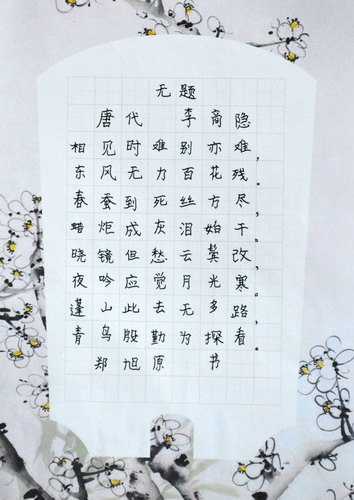 无题
唐代 李商隐
相见时难别亦难，
东风无力百花残。
春蚕到死丝方尽，
蜡炬成灰泪始干。
晓镜但愁云鬓改，
夜吟应觉月光寒。
蓬山此去无多路，
青鸟殷勤为探看。
郑旭原 书